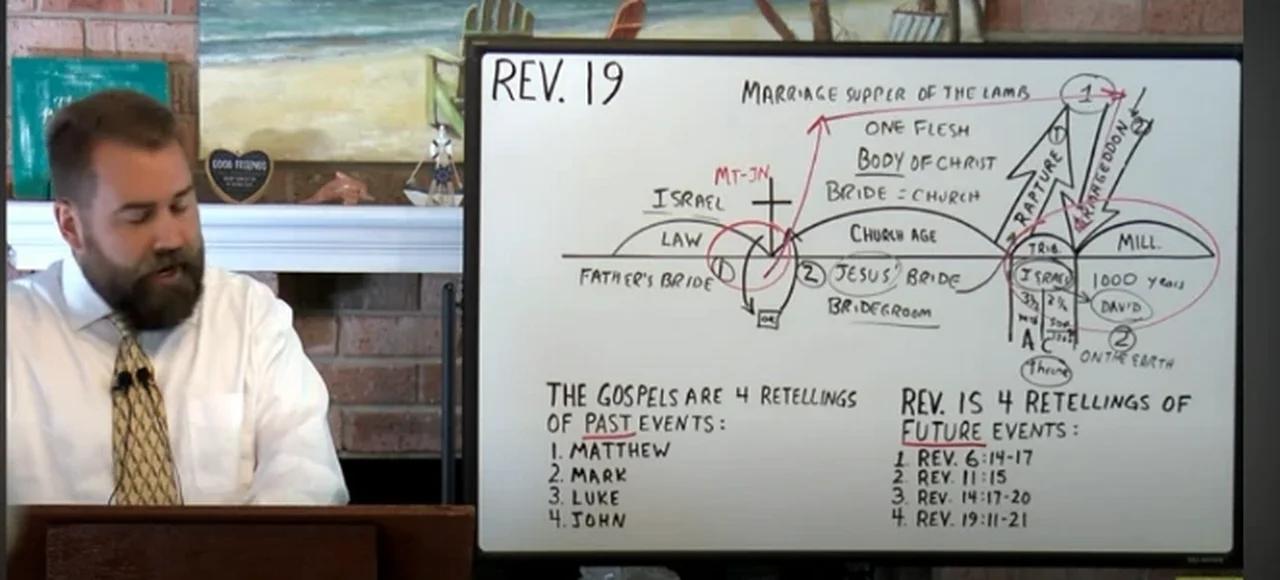 REV. 19
MARRIAGE SUPPER OF THE LAMB
1
ONE FLESH
BODY OF CHRIST
BRIDE = CHURCH
MT-JN
ISRAEL
LAW
CHURCH AGE
1
RAPTURE
ARMAGEDDON
2
TRIB.
MILL.
FATHER'S BRIDE
1
2
JESUS' BRIDE
BRIDEGROOM
ISRAEL
1000 years
DAVID
3½
A C
throne
2
ON THE EARTH
THE GOSPELS ARE 4 RETELLINGS
OF PAST EVENTS:
1. MATTHEW
2. MARK
3. LUKE
4. JOHN
REV. IS 4 RETELLINGS OF
FUTURE EVENTS:
1. REV. 6:14-17
2. REV. 11:15
3. REV. 14:17-20
4. REV. 19:11-21
GOOD FRIENDS